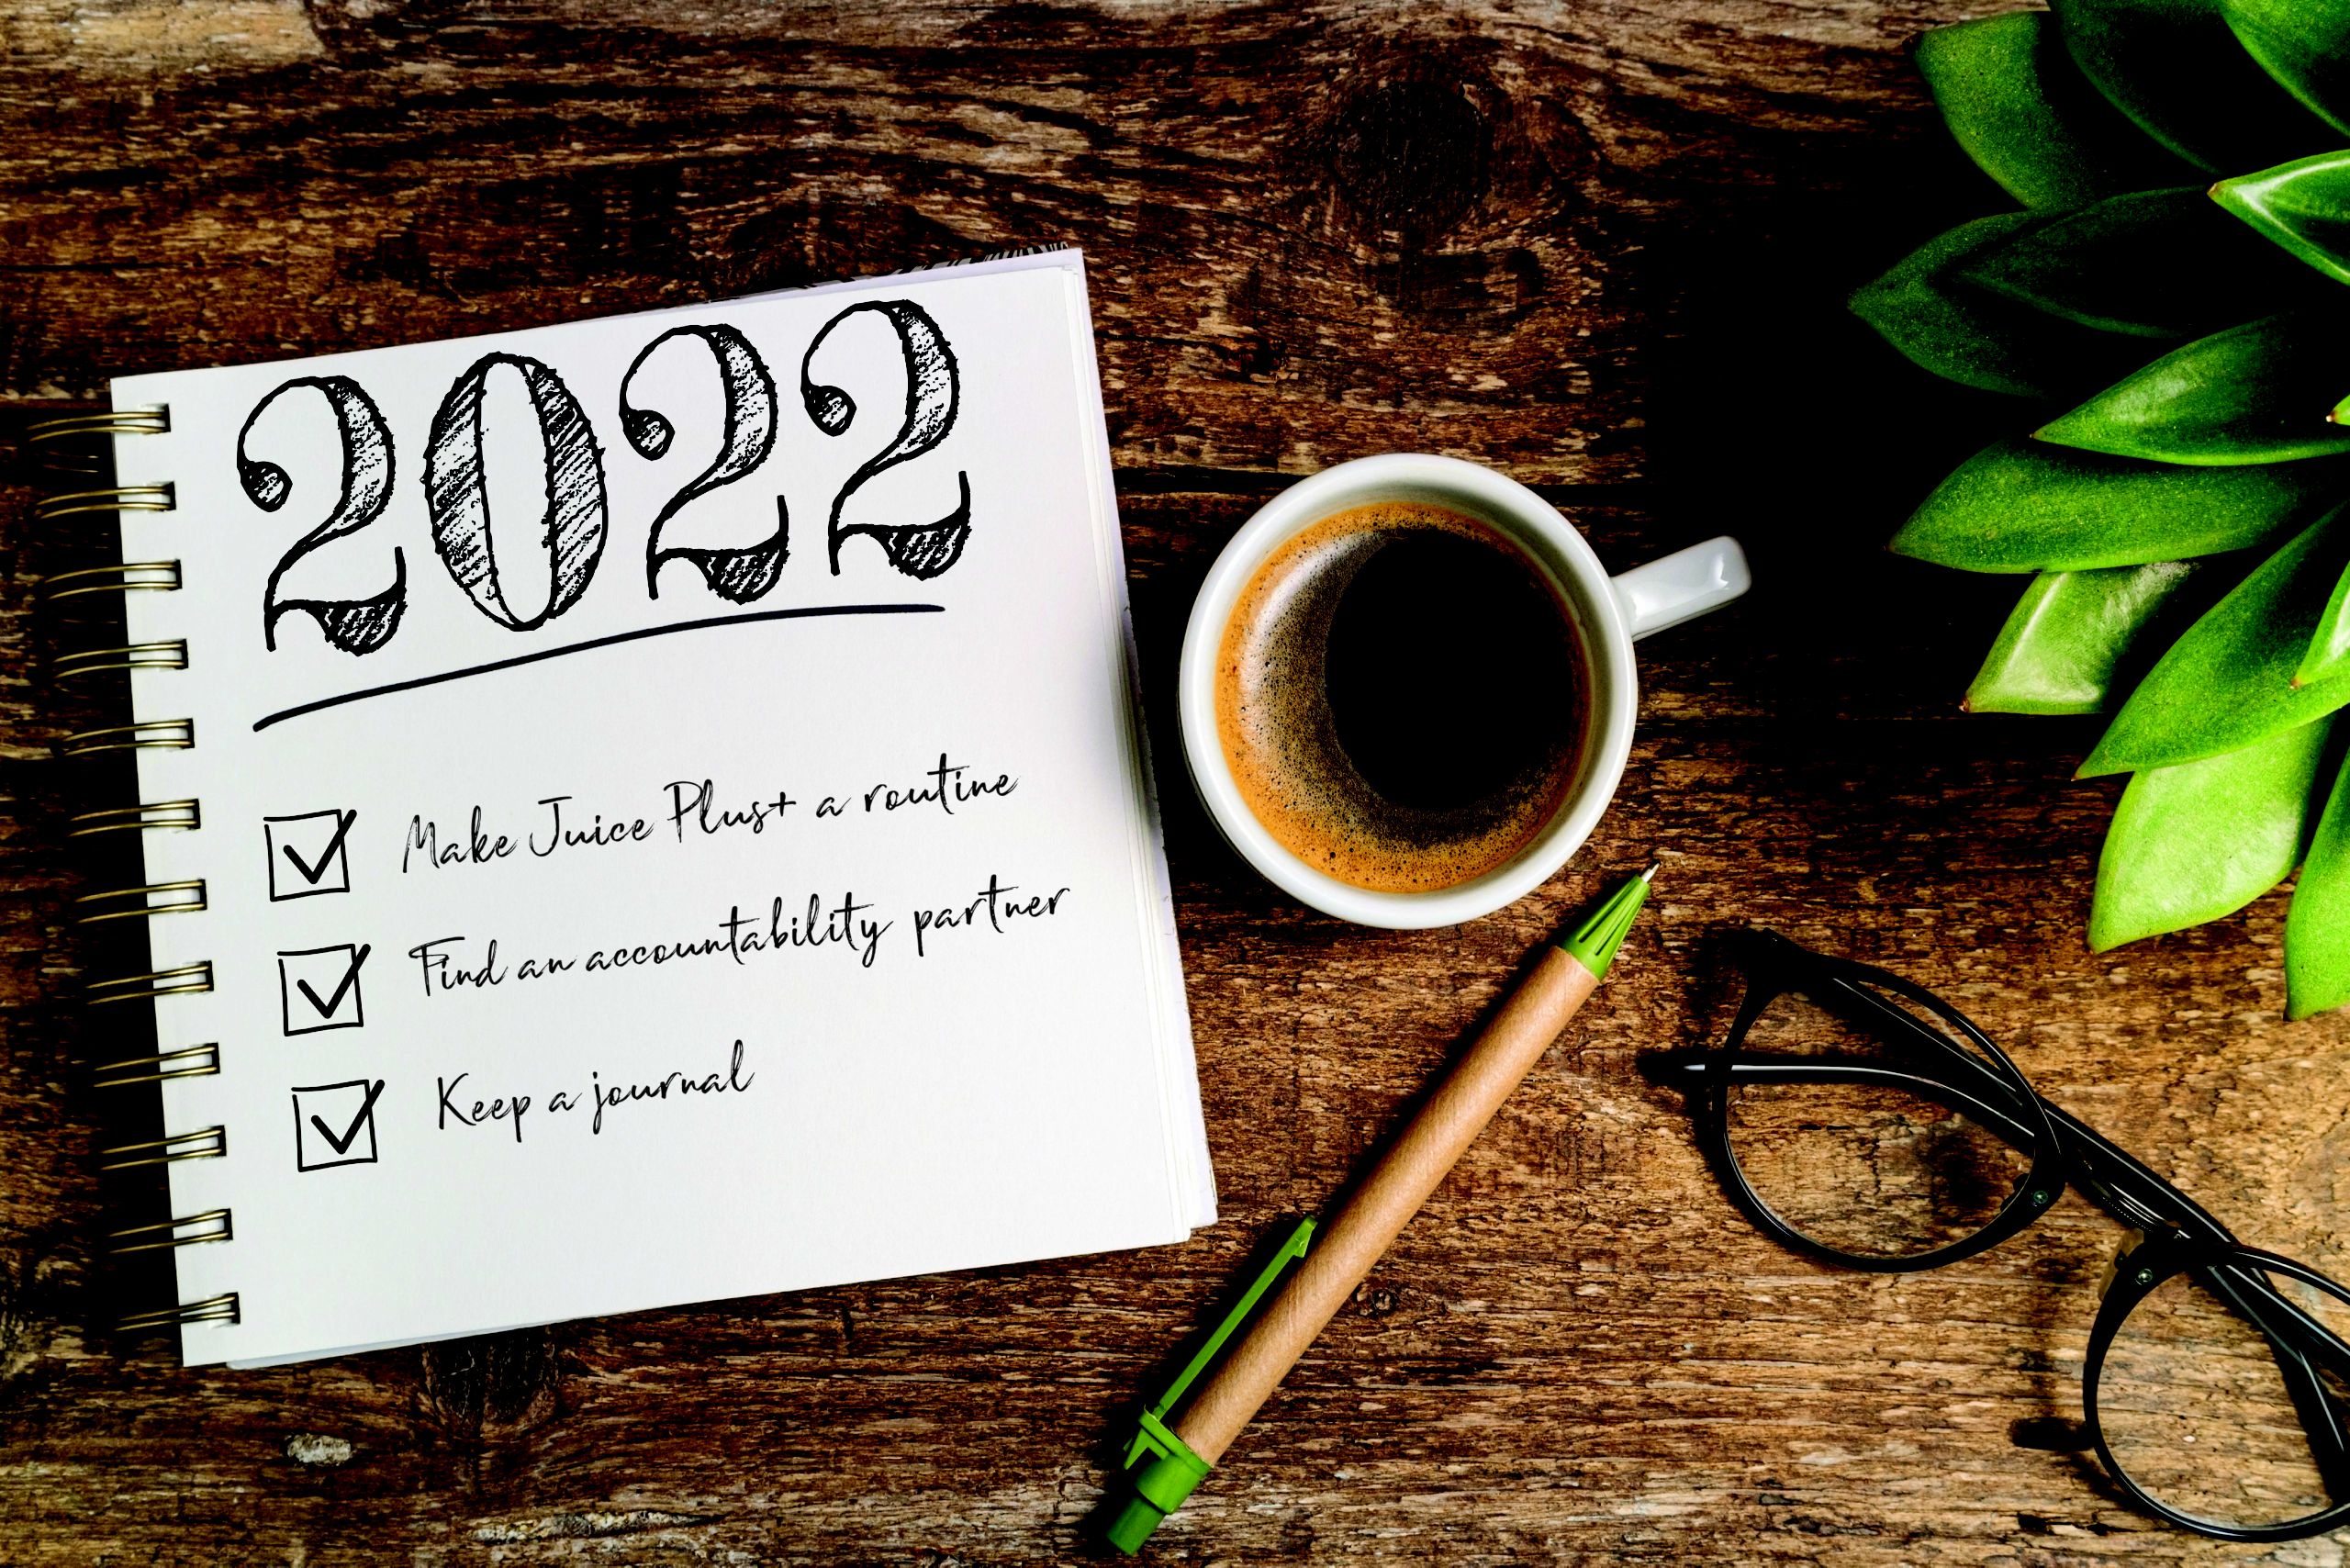 2022
Make Juice Plus+ a routine
Find an accountability partner
Keep a journal